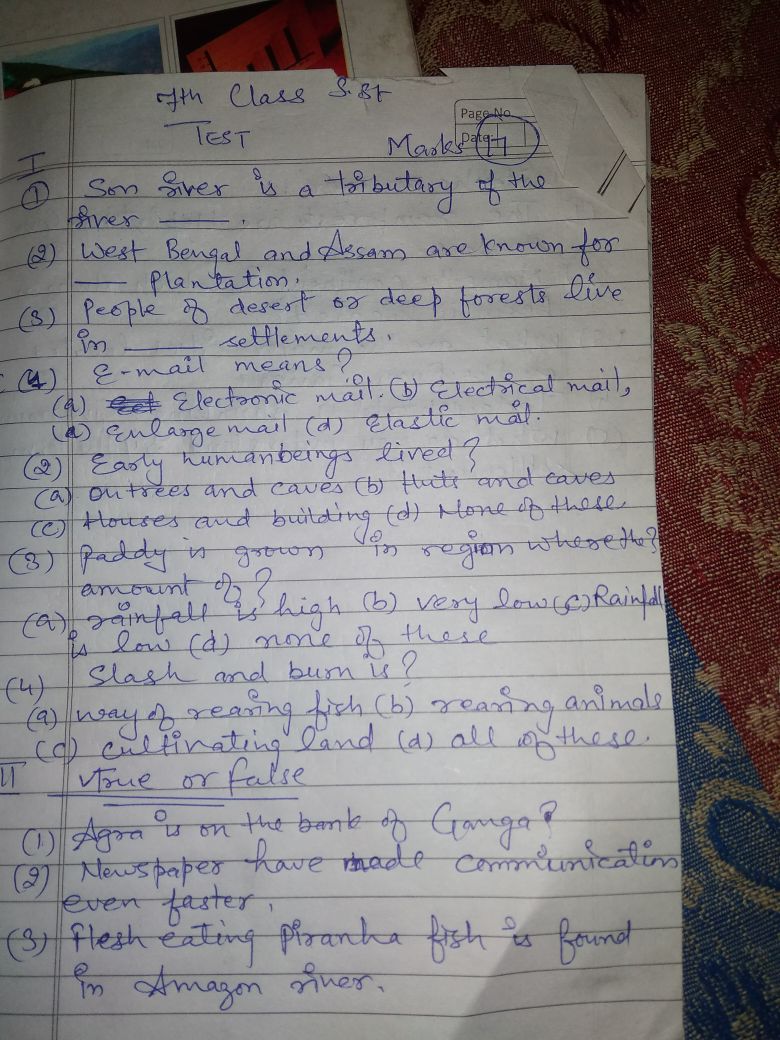 7th Class S.St
TEST
Page No.
Date:
Marks 17
I
① Son river is a tributary of the
river ______ .
(2) West Bengal and Assam are known for
______ plantation.
(3) People of desert or deep forests live
in ______ settlements.
(4) E-mail means?
(a) Electronic mail. (b) Electrical mail,
(c) Enlarge mail (d) Elastic mail.
(2) Early humanbeings lived?
(a) on trees and caves (b) Huts and caves
(c) Houses and building (d) None of these.
(3) Paddy is grown in region where the?
amount of?
(a) rainfall is high (b) very low (c) Rainfall
is low (d) none of these
(4) Slash and burn is?
(a) way of rearing fish (b) rearing animals
(c) cultivating land (d) all of these.
II True or false
(1.) Agra is on the bank of Ganga?
(2) Newspaper have made communication
even faster.
(3) Flesh eating Piranha fish is found
in Amazon river.